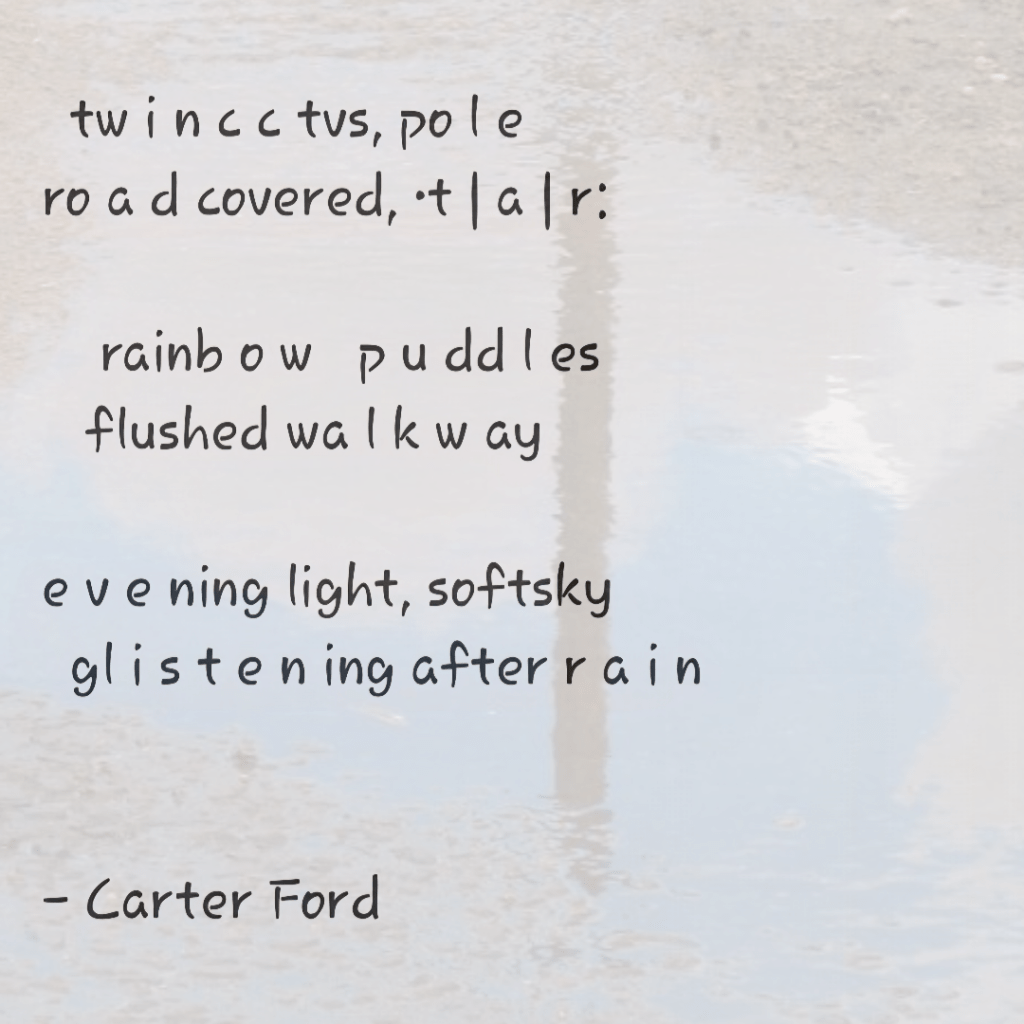 tw i n c c tvs, po l e
ro a d covered, ·t | a | r:
rainb o w   p u dd l es
flushed wa l k w ay
e v e ning light, softsky
gl i s t e n ing after r a i n
– Carter Ford